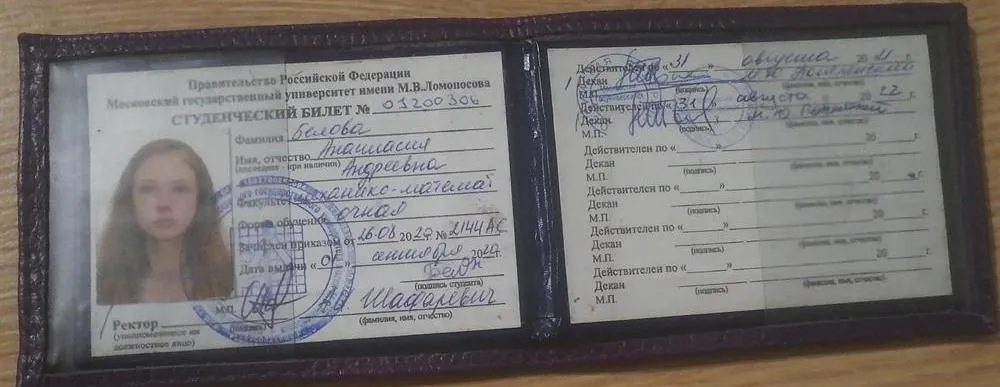 Правительство Российской Федерации
Московский государственный университет имени М.В.Ломоносова
СТУДЕНЧЕСКИЙ БИЛЕТ № 01200306
Фамилия Белова
Имя, отчество Анастасия
(последнее - при наличии) Андреевна
Факультет механико-математ
Форма обучения очная
Зачислен приказом от 26.08 2020 г. № 2144АС
Дата выдачи «01» сентября 2020 г.
(подпись студента)
М.П.
Ректор Шафаревич
(уполномоченное им должностное лицо)
(подпись)
(фамилия, имя, отчество)
Действителен по «31» августа 2021 г.
Декан
М.П.
(подпись)
Действителен по «31» августа 2022 г.
Декан М.Ю.
М.П.
(подпись)
(фамилия, имя, отчество)
Действителен по « » 20 г.
Декан
М.П.
(подпись)
(фамилия, имя, отчество)
Действителен по « » 20 г.
Декан
М.П.
(подпись)
(фамилия, имя, отчество)
Действителен по « » 20 г.
Декан
М.П.
(подпись)
(фамилия, имя, отчество)
Действителен по « » 20 г.
Декан
М.П.
(подпись)
(фамилия, имя, отчество)